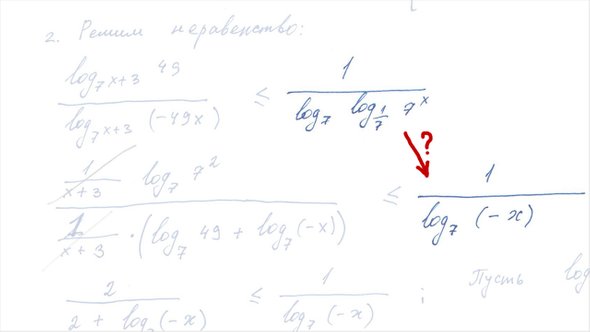 2. Решим неравенство:
log_{7^{x+3}} 49 / log_{7^{x+3}} (-49x) ≤ 1 / log_7 log_{1/7} 7^x
?
1/(x+3) log_7 7^2 / 1/(x+3) · (log_7 49 + log_7 (-x)) ≤ 1 / log_7 (-x)
2 / 2 + log_7 (-x) ≤ 1 / log_7 (-x) ; Пусть log